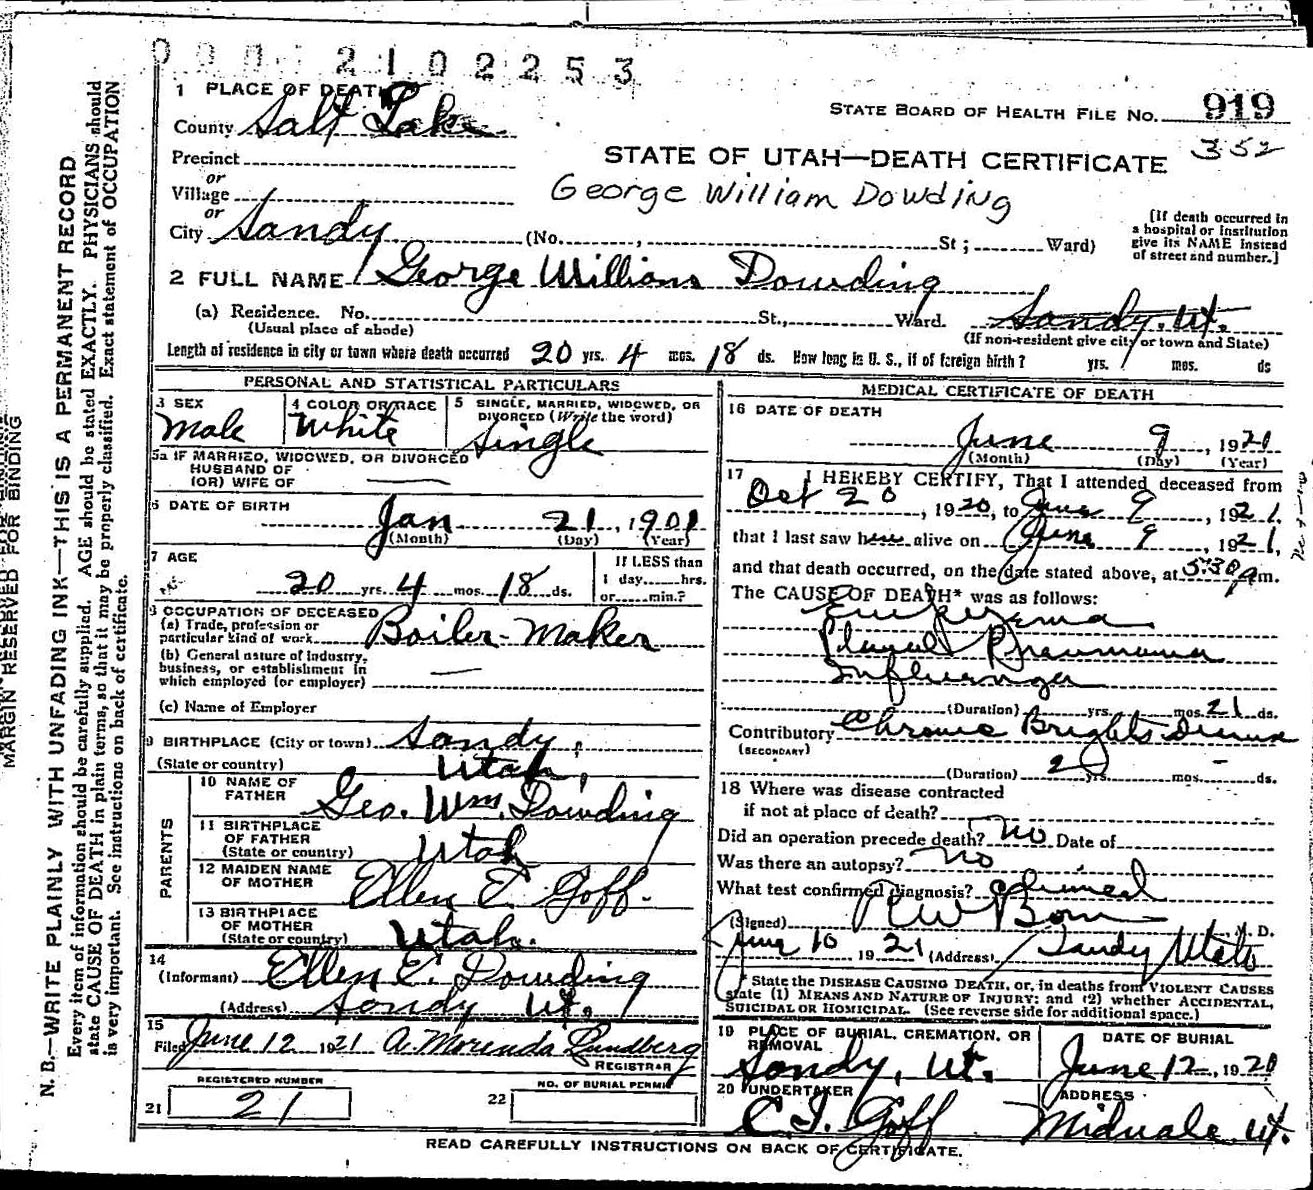 0002102253
1 PLACE OF DEATH
County Salt Lake
STATE BOARD OF HEALTH FILE No. 919
352
Precinct
or
STATE OF UTAH—DEATH CERTIFICATE
Village
or
George William Dowding
City Sandy (No. , St; Ward)
[If death occurred in
a hospital or institution
give its NAME instead
of street and number.]
2 FULL NAME George William Dowding
(a) Residence. No. St., Ward. Sandy, Ut.
(Usual place of abode) (If non-resident give city or town and State)
Length of residence in city or town where death occurred 20 yrs. 4 mos. 18 ds. How long in U. S., if of foreign birth? yrs. mos. ds
PERSONAL AND STATISTICAL PARTICULARS
3 SEX
Male
4 COLOR OR RACE
White
5 SINGLE, MARRIED, WIDOWED, OR
DIVORCED (Write the word)
Single
5a IF MARRIED, WIDOWED, OR DIVORCED
HUSBAND OF
(OR) WIFE OF
6 DATE OF BIRTH
Jan 21, 1901
(Month) (Day) (Year)
7 AGE
20 yrs. 4 mos. 18 ds.
If LESS than
1 day hrs.
or min.?
8 OCCUPATION OF DECEASED
(a) Trade, profession or
particular kind of work Boiler-Maker
(b) General nature of industry,
business, or establishment in
which employed (or employer)
(c) Name of Employer
9 BIRTHPLACE (City or town) Sandy,
(State or country) Utah,
PARENTS
10 NAME OF
FATHER Geo. Wm. Dowding
11 BIRTHPLACE
OF FATHER
(State or country) Utah
12 MAIDEN NAME
OF MOTHER Ellen E. Goff.
13 BIRTHPLACE
OF MOTHER
(State or country) Utah.
14
(Informant) Ellen E. Dowding
(Address) Sandy Ut.
15
Filed June 12 1921 A. Morenda Lundberg
REGISTRAR
REGISTERED NUMBER
21 21
NO. OF BURIAL PERMIT
22
MEDICAL CERTIFICATE OF DEATH
16 DATE OF DEATH
June 9, 1921
(Month) (Day) (Year)
17 I HEREBY CERTIFY, That I attended deceased from
Oct 20, 1920, to June 9, 1921.
that I last saw him alive on June 9, 1921,
and that death occurred, on the date stated above, at 5:30 m.
The CAUSE OF DEATH* was as follows:
Empyema
Pneumonia
Influenza
(Duration) yrs. mos. 21 ds.
Contributory Chronic Brights Disease
(SECONDARY)
(Duration) 2 yrs. mos. - ds.
18 Where was disease contracted
if not at place of death?
Did an operation precede death? no Date of
Was there an autopsy? no
What test confirmed diagnosis? clinical
(Signed) , M. D.
June 10 1921 (Address) Sandy Utah
* State the DISEASE CAUSING DEATH, or, in deaths from VIOLENT CAUSES
state (1) MEANS AND NATURE OF INJURY; and (2) whether ACCIDENTAL,
SUICIDAL OR HOMICIDAL. (See reverse side for additional space.)
19 PLACE OF BURIAL, CREMATION, OR
REMOVAL
Sandy, Ut.
DATE OF BURIAL
June 12, 1920
20 UNDERTAKER
C. I. Goff
ADDRESS
Midvale Ut.
READ CAREFULLY INSTRUCTIONS ON BACK OF CERTIFICATE.
MARGIN RESERVED FOR BINDING
N. B.—WRITE PLAINLY WITH UNFADING INK—THIS IS A PERMANENT RECORD
Every item of information should be carefully supplied. AGE should be stated EXACTLY. PHYSICIANS should
state CAUSE OF DEATH in plain terms, so that it may be properly classified. Exact statement of OCCUPATION
is very important. See instructions on back of certificate.